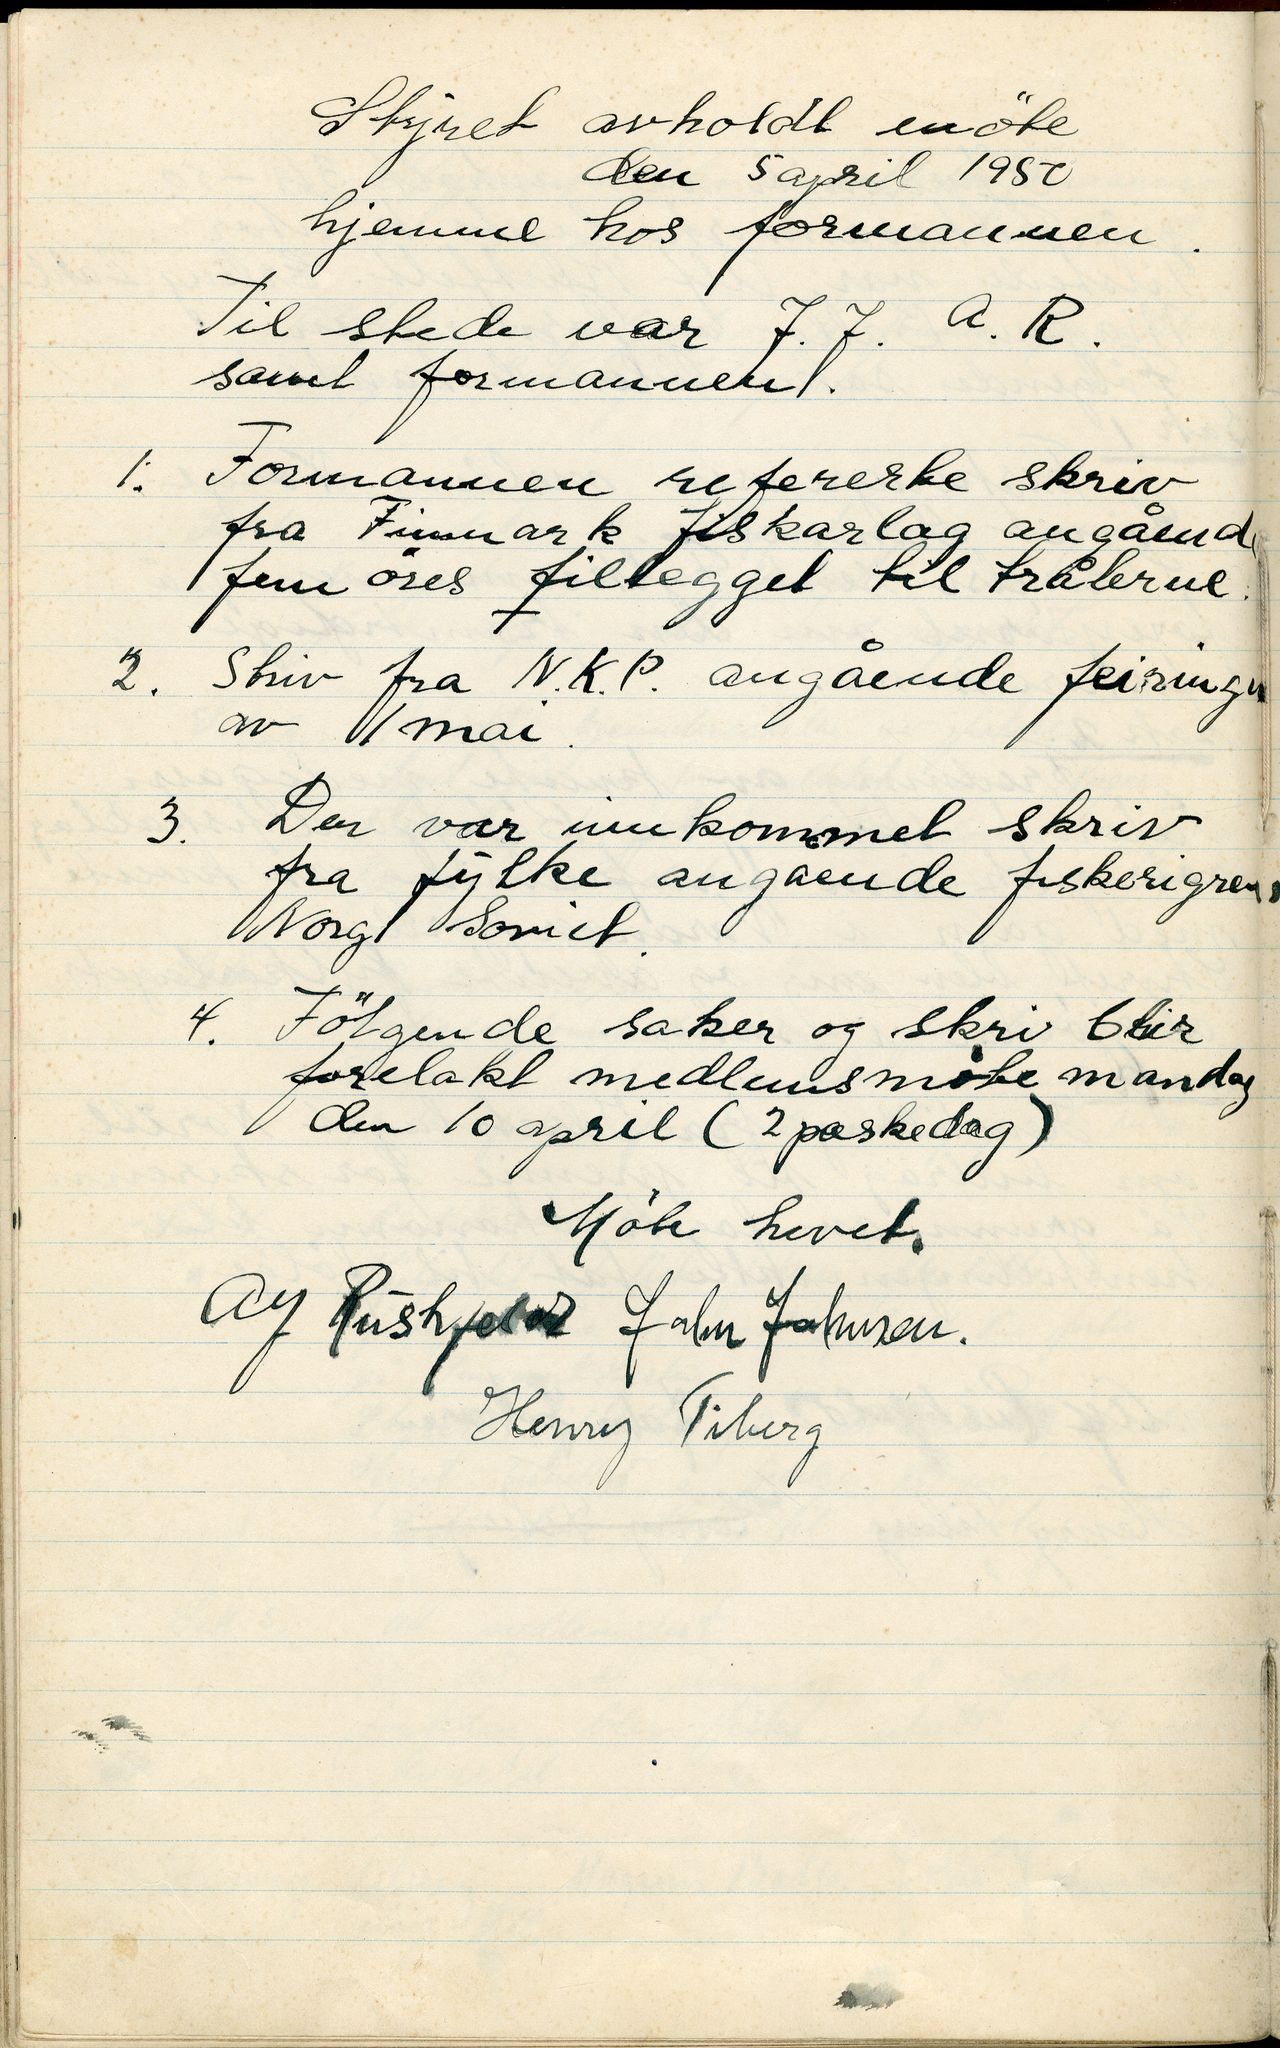 Styret avholdt möte
den 5 april 1950
hjemme hos formannen.
Til stede var J. J. A. R.
samt formannen.
1. Formannen refererte skriv
fra Finnmark fiskarlag angående
fem öres tillegget til trålerne.
2. Skriv fra N.K.P. angående feiringen
av 1 mai.
3. Der var innkommet skriv
fra fylke angående fiskerigrens
Norg Soviet.
4. Fölgende saker og skriv blir
forelakt medlemsmöte mandag
den 10 april (2 paskedag)
Möte hevet.
John Johnsen.
Henry Tiberg